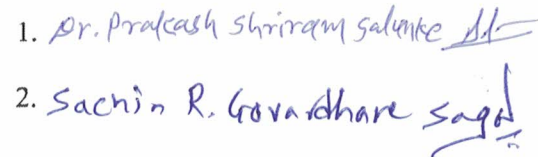 1. Dr. Prakash Shriram Salunke
2. Sachin R. Govardhare